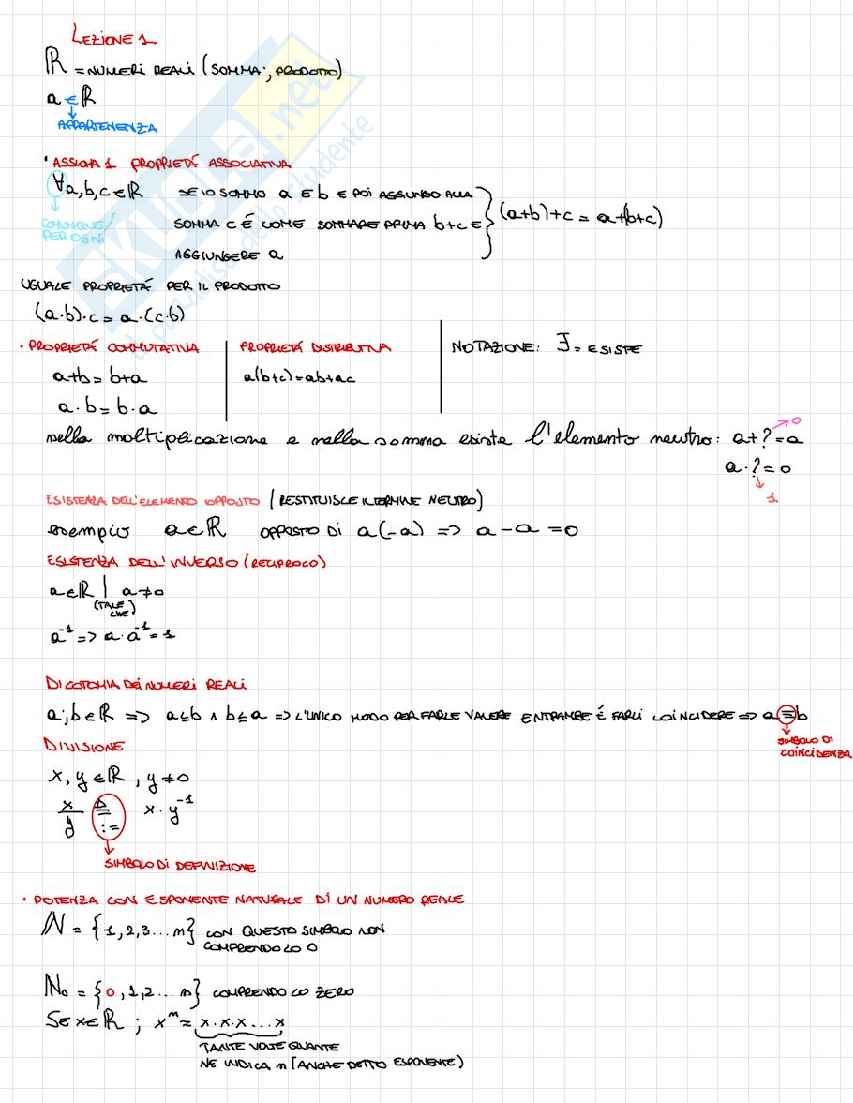 LEZIONE 1
ℝ = NUMERI REALI (SOMMA; PRODOTTO)
a ∈ ℝ
APPARTENENZA
• ASSIOMA 1 PROPRIETÁ ASSOCIATIVA
∀a,b,c ∈ ℝ SE IO SOMMO a E b E POI AGGIUNGO ALLA
SOMMA C É COME SOMMARE PRIMA b+c E (a+b)+c = a+(b+c)
PER OGNI
AGGIUNGERE a
UGUALE PROPRIETÁ PER IL PRODOTTO
(a·b)·c = a·(c·b)
· PROPRIETÁ COMMUTATIVA PROPRIETÁ DISTRIBUTIVA NOTAZIONE: ∃ = ESISTE
a+b = b+a a(b+c)=ab+ac
a·b = b·a
nella moltiplicazione e nella somma esiste l'elemento neutro: a+?=a 0
a·?=0
1
ESISTENZA DELL'ELEMENTO OPPOSTO (RESTITUISCE IL TERMINE NEUTRO)
esempio a∈ℝ OPPOSTO DI a(-a) => a-a=0
ESISTENZA DELL'INVERSO (RECIPROCO)
a∈ℝ | a≠0
(TALE CHE)
a⁻¹ => a·a⁻¹=1
DICOTOMIA DEI NUMERI REALI
a;b∈ℝ => a≤b ∧ b≤a => L'UNICO MODO PER FARLE VALERE ENTRAMBE É FARLI COINCIDERE => a≡b
SIMBOLO DI COINCIDENZA
DIVISIONE
x,y∈ℝ, y≠0
x/y ≜ := x·y⁻¹
SIMBOLO DI DEFINIZIONE
· POTENZA CON ESPONENTE NATURALE DI UN NUMERO REALE
ℕ = {1,2,3...n} CON QUESTO SIMBOLO NON
COMPRENDO LO 0
ℕ₀ = {0,1,2...n} COMPRENDO LO ZERO
Se x∈ℝ ; xⁿ = x·x·x...x
TANTE VOLTE QUANTE
NE INDICA n [ANCHE DETTO ESPONENTE)
SKUOLA.net